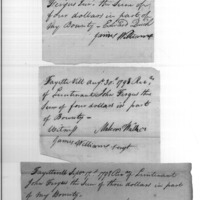 Fergus Lieu^t the Sum of
four dollars in part of
my Bounty -
James Williams
Fayette Vill Aug^t 30^th 1798 Rec^d
of Lieutenant John Fergus the
Sum of four dollars in part
of Bounty -
Witness
James Williams Serg^t
Fayetteville Sept^r 1798 Rec^d of Lieutenant
John Fergus the Sum of four dollars in part
of my Bounty.